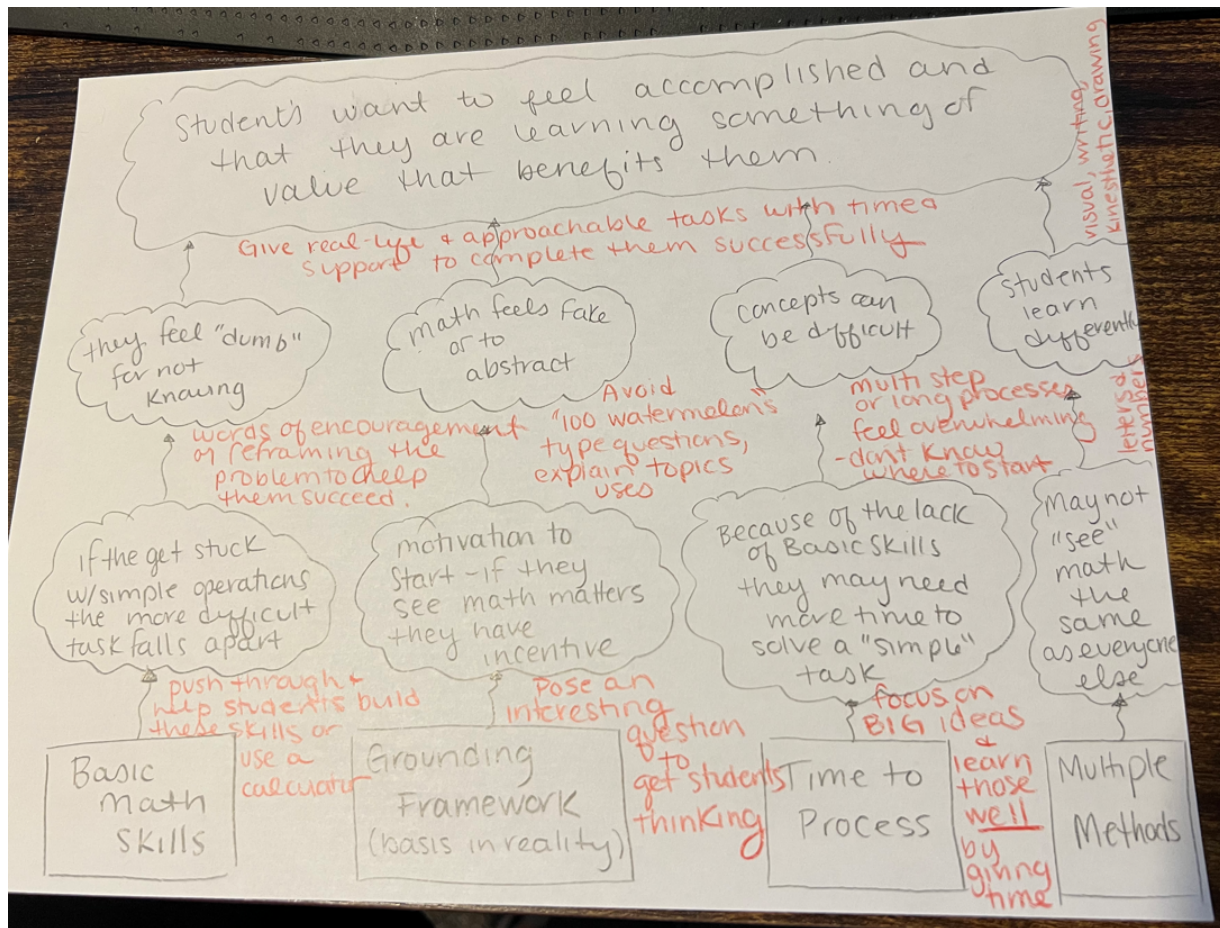 Student's want to feel accomplished and
that they are learning something of
value that benefits them.
visual, writing,
kinesthetic, drawing
Give real-life + approachable tasks with time &
support to complete them successfully
they feel "dumb"
for not
knowing
math feels fake
or to
abstract
concepts can
be difficult
students
learn
differently
words of encouragement
or reframing the
problem to help
them succeed.
Avoid
"100 watermelon's
type questions,
explain topics
uses
multi step
or long processes
feel overwhelming
- don't know
where to start
letters &
numbers
if the get stuck
w/simple operations
the more difficult
task falls apart
motivation to
start - if they
see math matters
they have
incentive
Because of the lack
of Basic skills
they may need
more time to
solve a "simple"
task
May not
"see"
math
the
same
as everyone
else
push through +
help students build
these skills or
use a
calculator
Pose an
interesting
question
to
get students
thinking
focus on
BIG ideas
&
learn
those
well
by
ginng
time
Basic
Math
Skills
Grounding
Framework
(basis in reality)
Time to
Process
Multiple
Methods